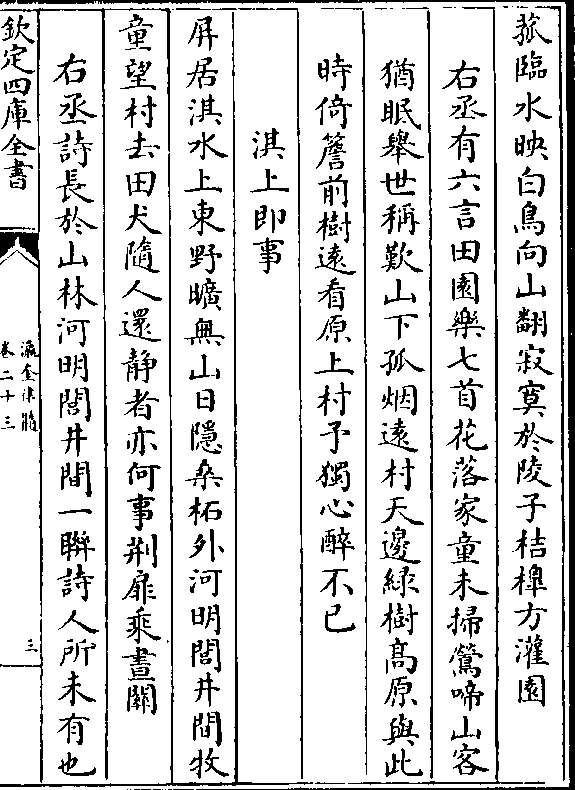 菰臨水映白鳥向山翻寂寞於陵子桔橰方灌園
右丞有六言田園樂七首花落家童未掃鶯啼山客
猶眠舉世稱歎山下孤烟遠村天邊緑樹髙原與此
時倚簷前樹遠看原上村予獨心醉不已
淇上即事
屏居淇水上東野曠無山日隱桑柘外河明閭井間牧
童望村去田犬隨人還静者亦何事荆扉乘晝關
右丞詩長於山林河明閭井間一聯詩人所未有也
欽定四庫全書
瀛奎律髓
卷二十三
三